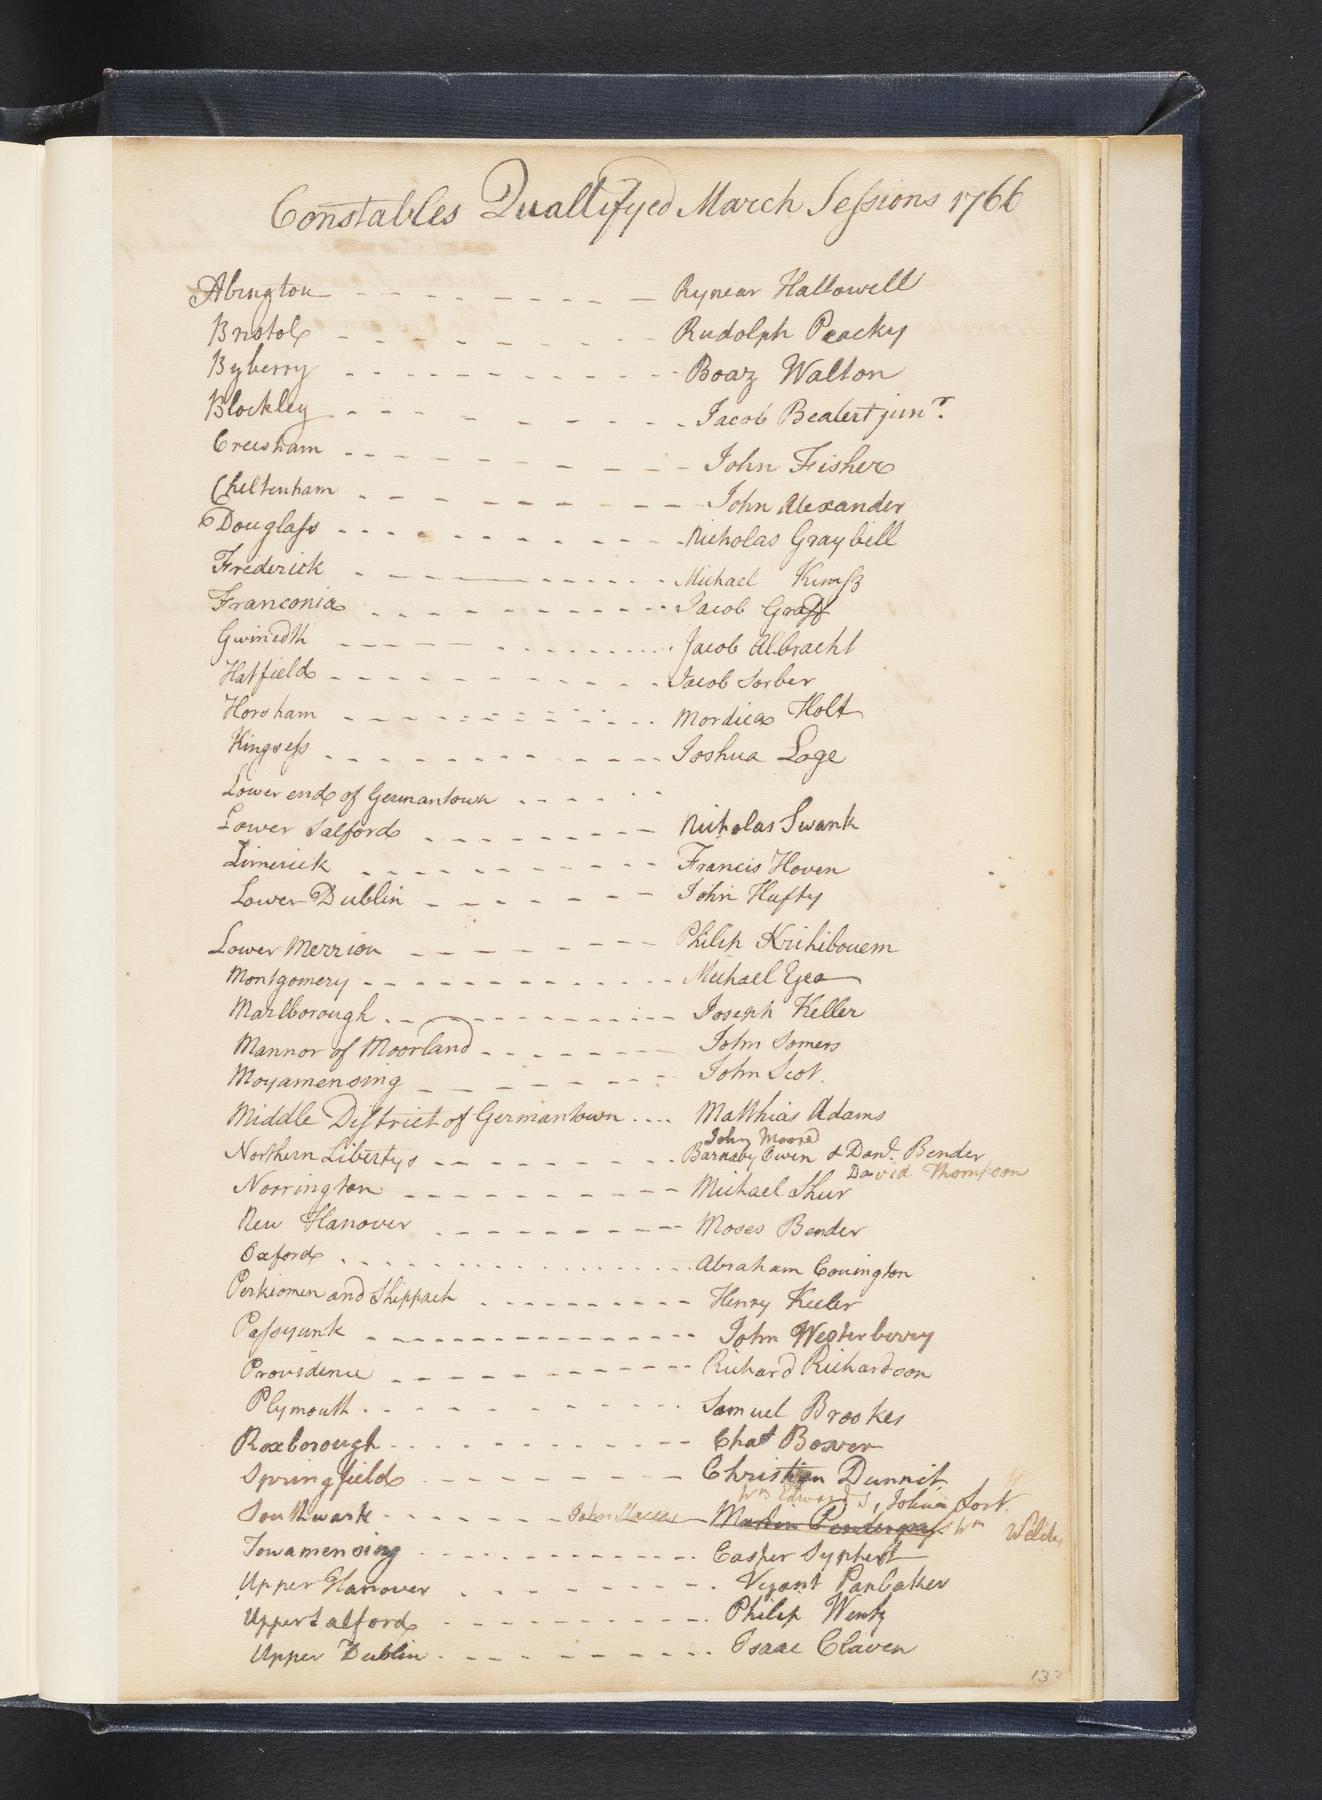 Constables Quallifyed March Sessions 1766
Abington Rynear Hallowell
Bristol Rudolph Peacky
Byberry Boaz Walton
Blockley Jacob Bealert junr.
Creesham John Fisher
Cheltenham John Alexander
Douglass Nicholas Graybill
Frederick Michael
Franconia Jacob Graff
Gwinedth Jacob Albracht
Hatfield Jacob Sorber
Horsham Mordica Holt
Kingsess Joshua Loge
Lower end of Germantown
Lower Salford Nicholas Swank
Limerick Francis Hoven
Lower Dublin John Hufty
Lower Merrion Philip
Montgomery Michael
Marlborough Joseph Keller
Mannor of Moorland John Somers
Moyamensing John Scot.
Middle District of Germantown .... Matthias Adams
John Moore
Northern Libertys Barnaby Owen & Danl. Bender
David Thompson
Norrington Michael Shur
New Hanover Moses Bender
Oxford Abraham Covington
Perkiomen and Skippach Henry Keeler
Passyunk John Westerberry
Providence Richard Richardson
Plymouth Samuel Brookes
Roxborough Bower
Springfield Christian Dunnit
Wm Edwards,
Southwark John Wm
Towamensing Casper
Upper Hanover Panbaker
Upper Salford Philip Wentz
Upper Dublin Isaac Claven